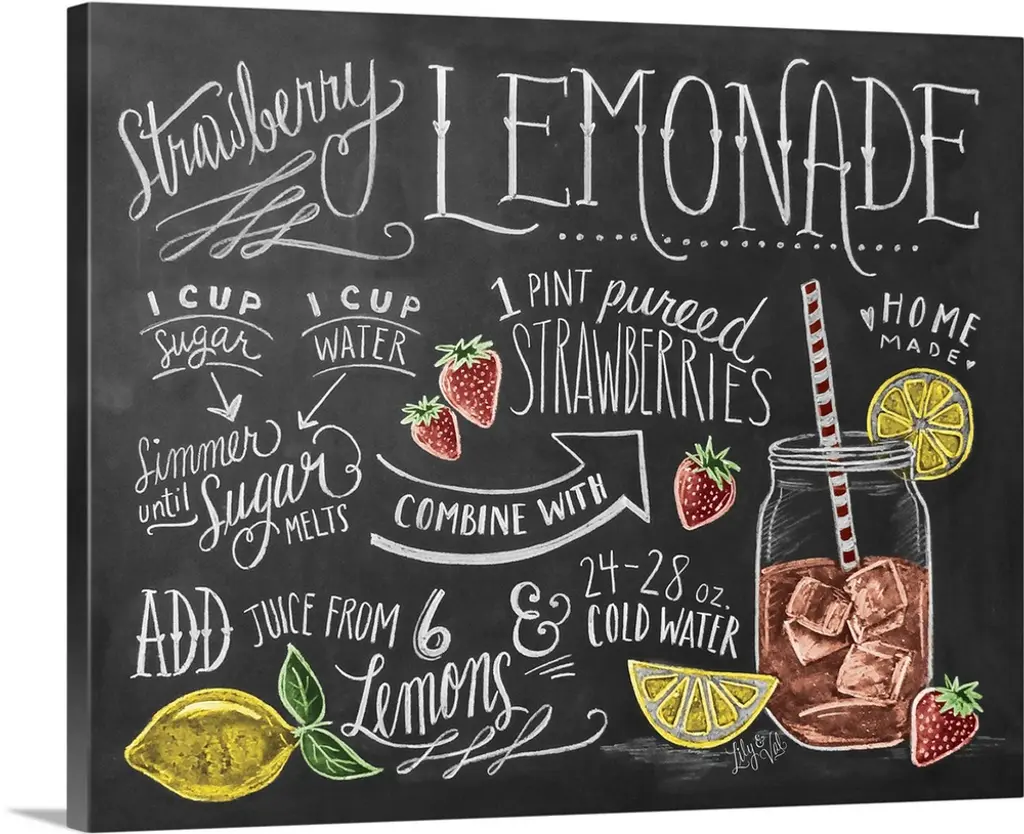 Strawberry LEMONADE
1 CUP
Sugar
1 CUP
WATER
Simmer
until Sugar
MELTS
1 PINT pureed
STRAWBERRIES
COMBINE WITH
HOME
MADE
ADD JUICE FROM 6
Lemons
& 24-28 oz.
COLD WATER
Lily & Val